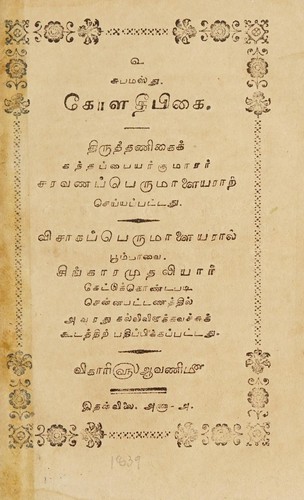 உ
சுபமஸ்து.
கோளதீபிகை.
திருத்தணிகைக்
கந்தப்பையர்குமாரர்
சரவணப்பெருமாளையராற்
செய்யப்பட்டது.
விசாகப்பெருமாளையரால்
பூம்பாவை.
சிங்காரமுதலியார்
கேட்டுக்கொண்டபடி
சென்னபட்டணத்தில்
அவரது கல்விவிளக்கவச்சுக்
கூடத்திற் பதிப்பிக்கப்பட்டது.
விகாரி௵ ஆவணி௴
இதன்விலை. அணா-அ.
1839